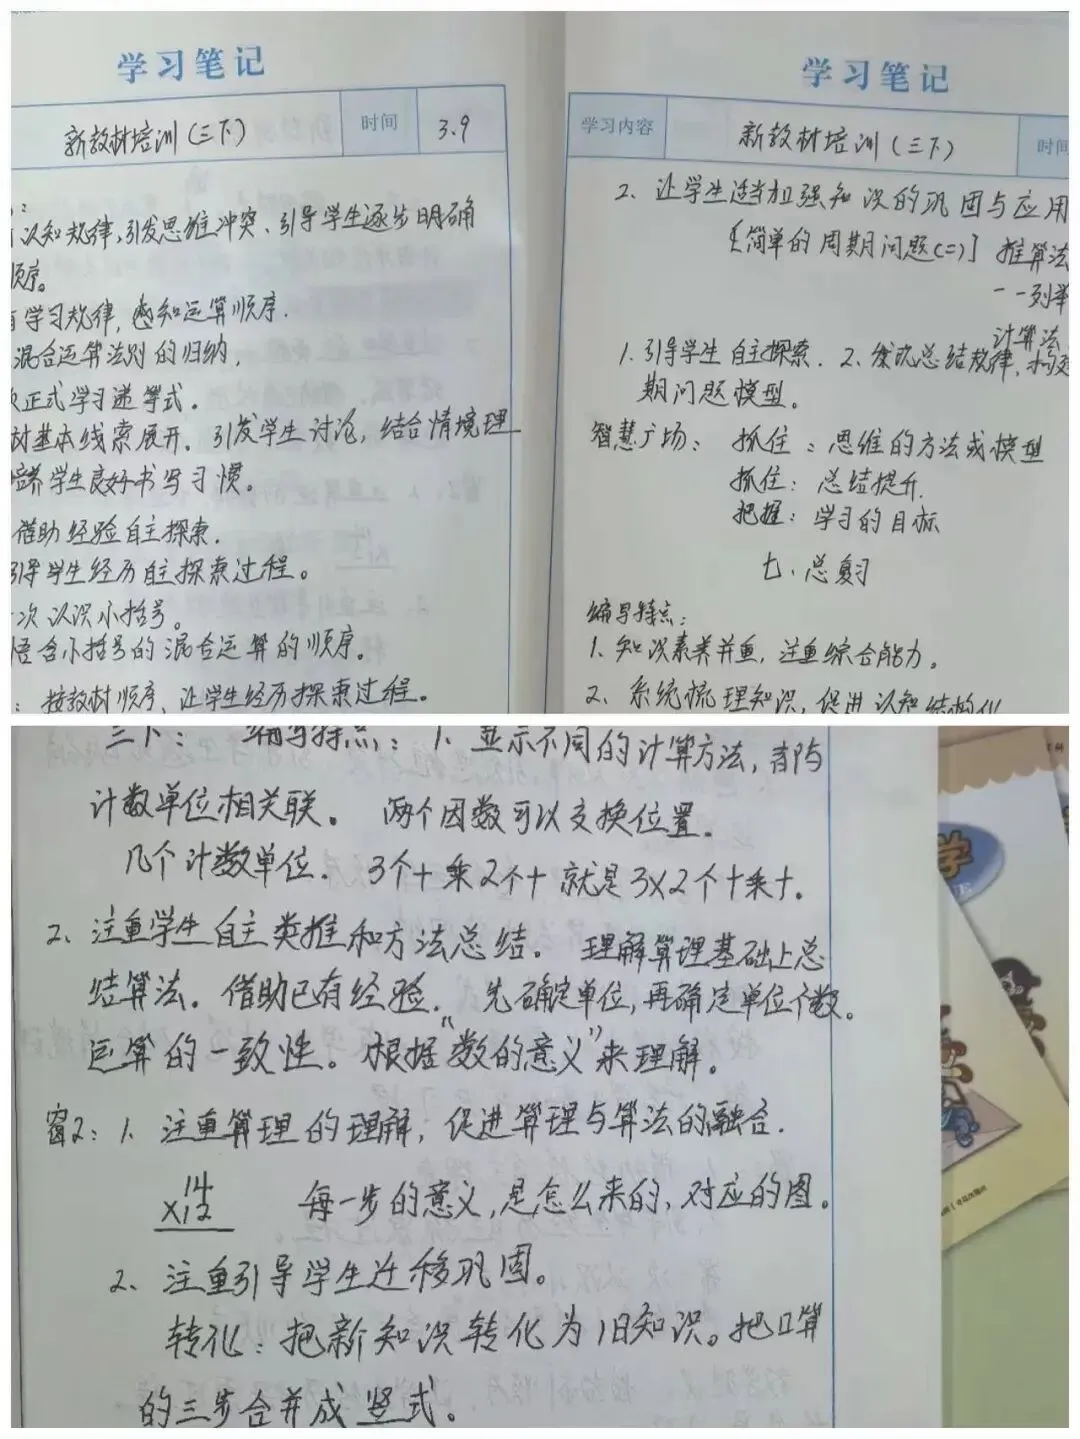 学习笔记
新教材培训(三下) 时间 3.9
认知规律,引发思维冲突、引导学生逐步明确
顺序。
学习规律,感知运算顺序.
混合运算法则的归纳,
正式学习递等式.
基本线索展开. 引发学生讨论,结合情境理
学生良好书写习惯。
借助经验自主探索.
引导学生经历自主探索过程。
次认识小括号。
含小括号的混合运算的顺序。
: 按教材顺序、让学生经历探索过程。
学习笔记
学习内容 新教材培训(三下) 时间
2、让学生适当加强知识的巩固与应用
【简单的周期问题(二)】 推算法
一一列举
计算法
1.引导学生自主探索. 2、尝试总结规律,构建
期问题模型。
智慧广场: 抓住:思维的方法或模型
抓住:总结提升.
把握:学习的目标
七、总复习
编写特点:
1、知识素养并重,注重综合能力。
2、系统梳理知识,促进认知结构化
三下: 编写特点: 1、显示不同的计算方法,都与
计数单位相关联。 两个因数可以交换位置.
几个计数单位. 3个十乘2个十就是3×2个十乘十.
2、注重学生自主类推和方法总结。 理解算理基础上总
结算法. 借助已有经验. 先确定单位,再确定单位个数。
运算的一致性。根据“数的意义”来理解。
窗2:1、注重算理的理解,促进算理与算法的融合.
14
×12 每一步的意义,是怎么来的,对应的图。
2、注重引导学生迁移巩固。
转化:把新知识转化为旧知识。把口算
的三步合并成竖式。
学